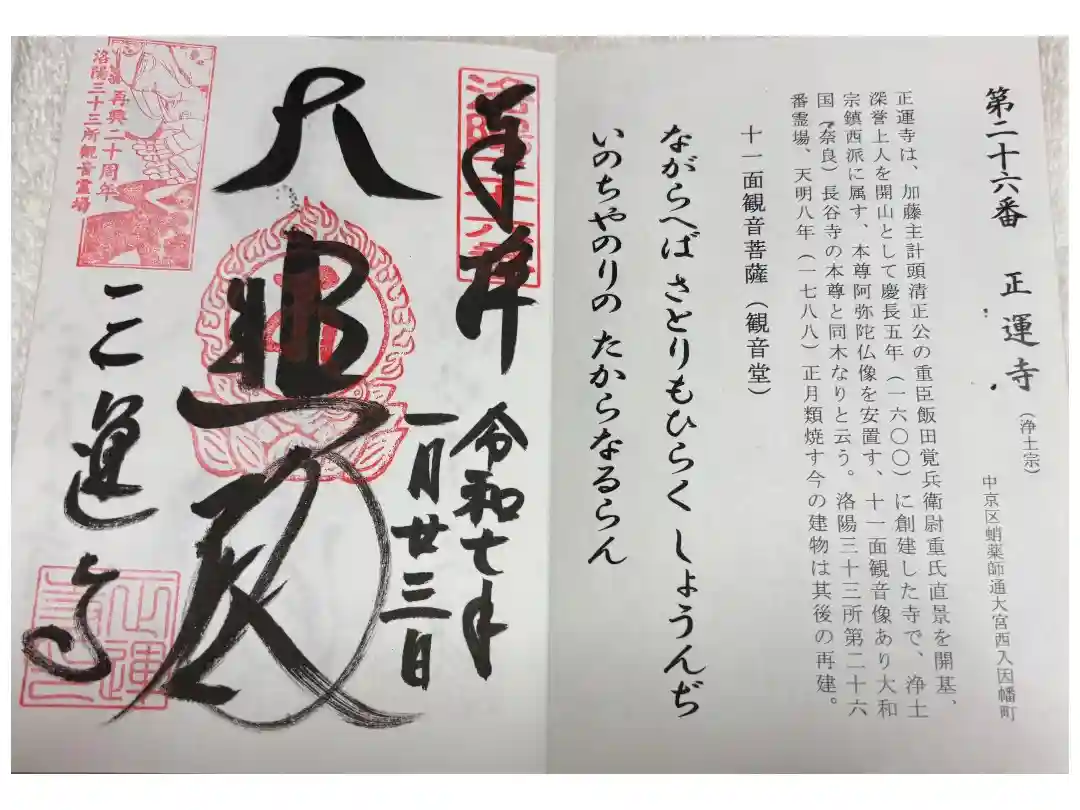 第二十六番 正運寺(浄土宗)
中京区蛸薬師通大宮西入因幡町
正運寺は、加藤主計頭清正公の重臣飯田覚兵衛尉重氏直景を開基、
深誉上人を開山として慶長五年(一六〇〇)に創建した寺で、浄土
宗鎮西派に属す、本尊阿弥陀仏像を安置す、十一面観音像あり大和
国(奈良)長谷寺の本尊と同木なりと云う。洛陽三十三所第二十六
番霊場、天明八年(一七八八)正月類焼す今の建物は其後の再建。
十一面観音菩薩(観音堂)
ながらへば さとりもひらく しょううんぢ
いのちやのりの たからなるらん
奉拝
洛陽二十六番
令和七年
一月廿三日
大悲殿
正運寺
再興二十周年
洛陽三十三所観音霊場
正運寺